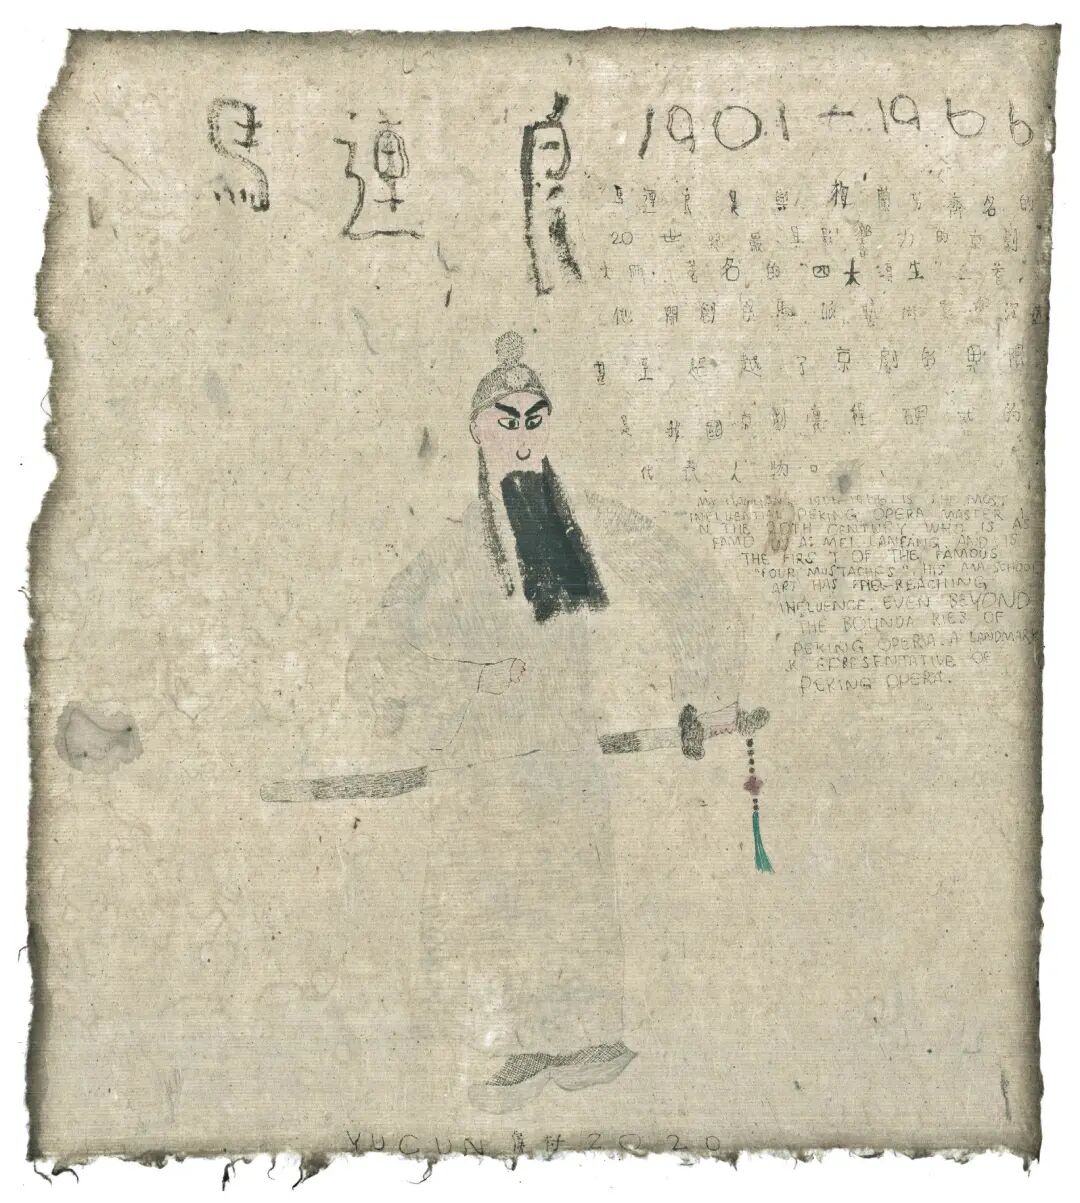 馬連良 1901-1966
馬連良是與梅蘭芳齊名的
20世紀最具影響力的京劇
大師，著名的“四大須生”之首，
他開創的馬派藝術影響深遠
甚至超越了京劇的界限
是我國京劇裏程碑式的
代表人物。
MA LIANLIANG 1901-1966 IS THE MOST
INFLUENTIAL PEKING OPERA MASTER I
N THE 20TH CENTURY WHO IS AS
FAMO AS MEI LANFANG AND IS
THE FIRST OF THE FAMOUS
"FOUR MUSTACHES". HIS MA SCHOOL
ART HAS REACHING
INFLUENCE. EVEN BEYOND
THE BOUNDA RIES OF
PEKING OPERA. A LANDMARK
REPRESENTATIVE OF
PEKING OPERA.
YUCUN 2020